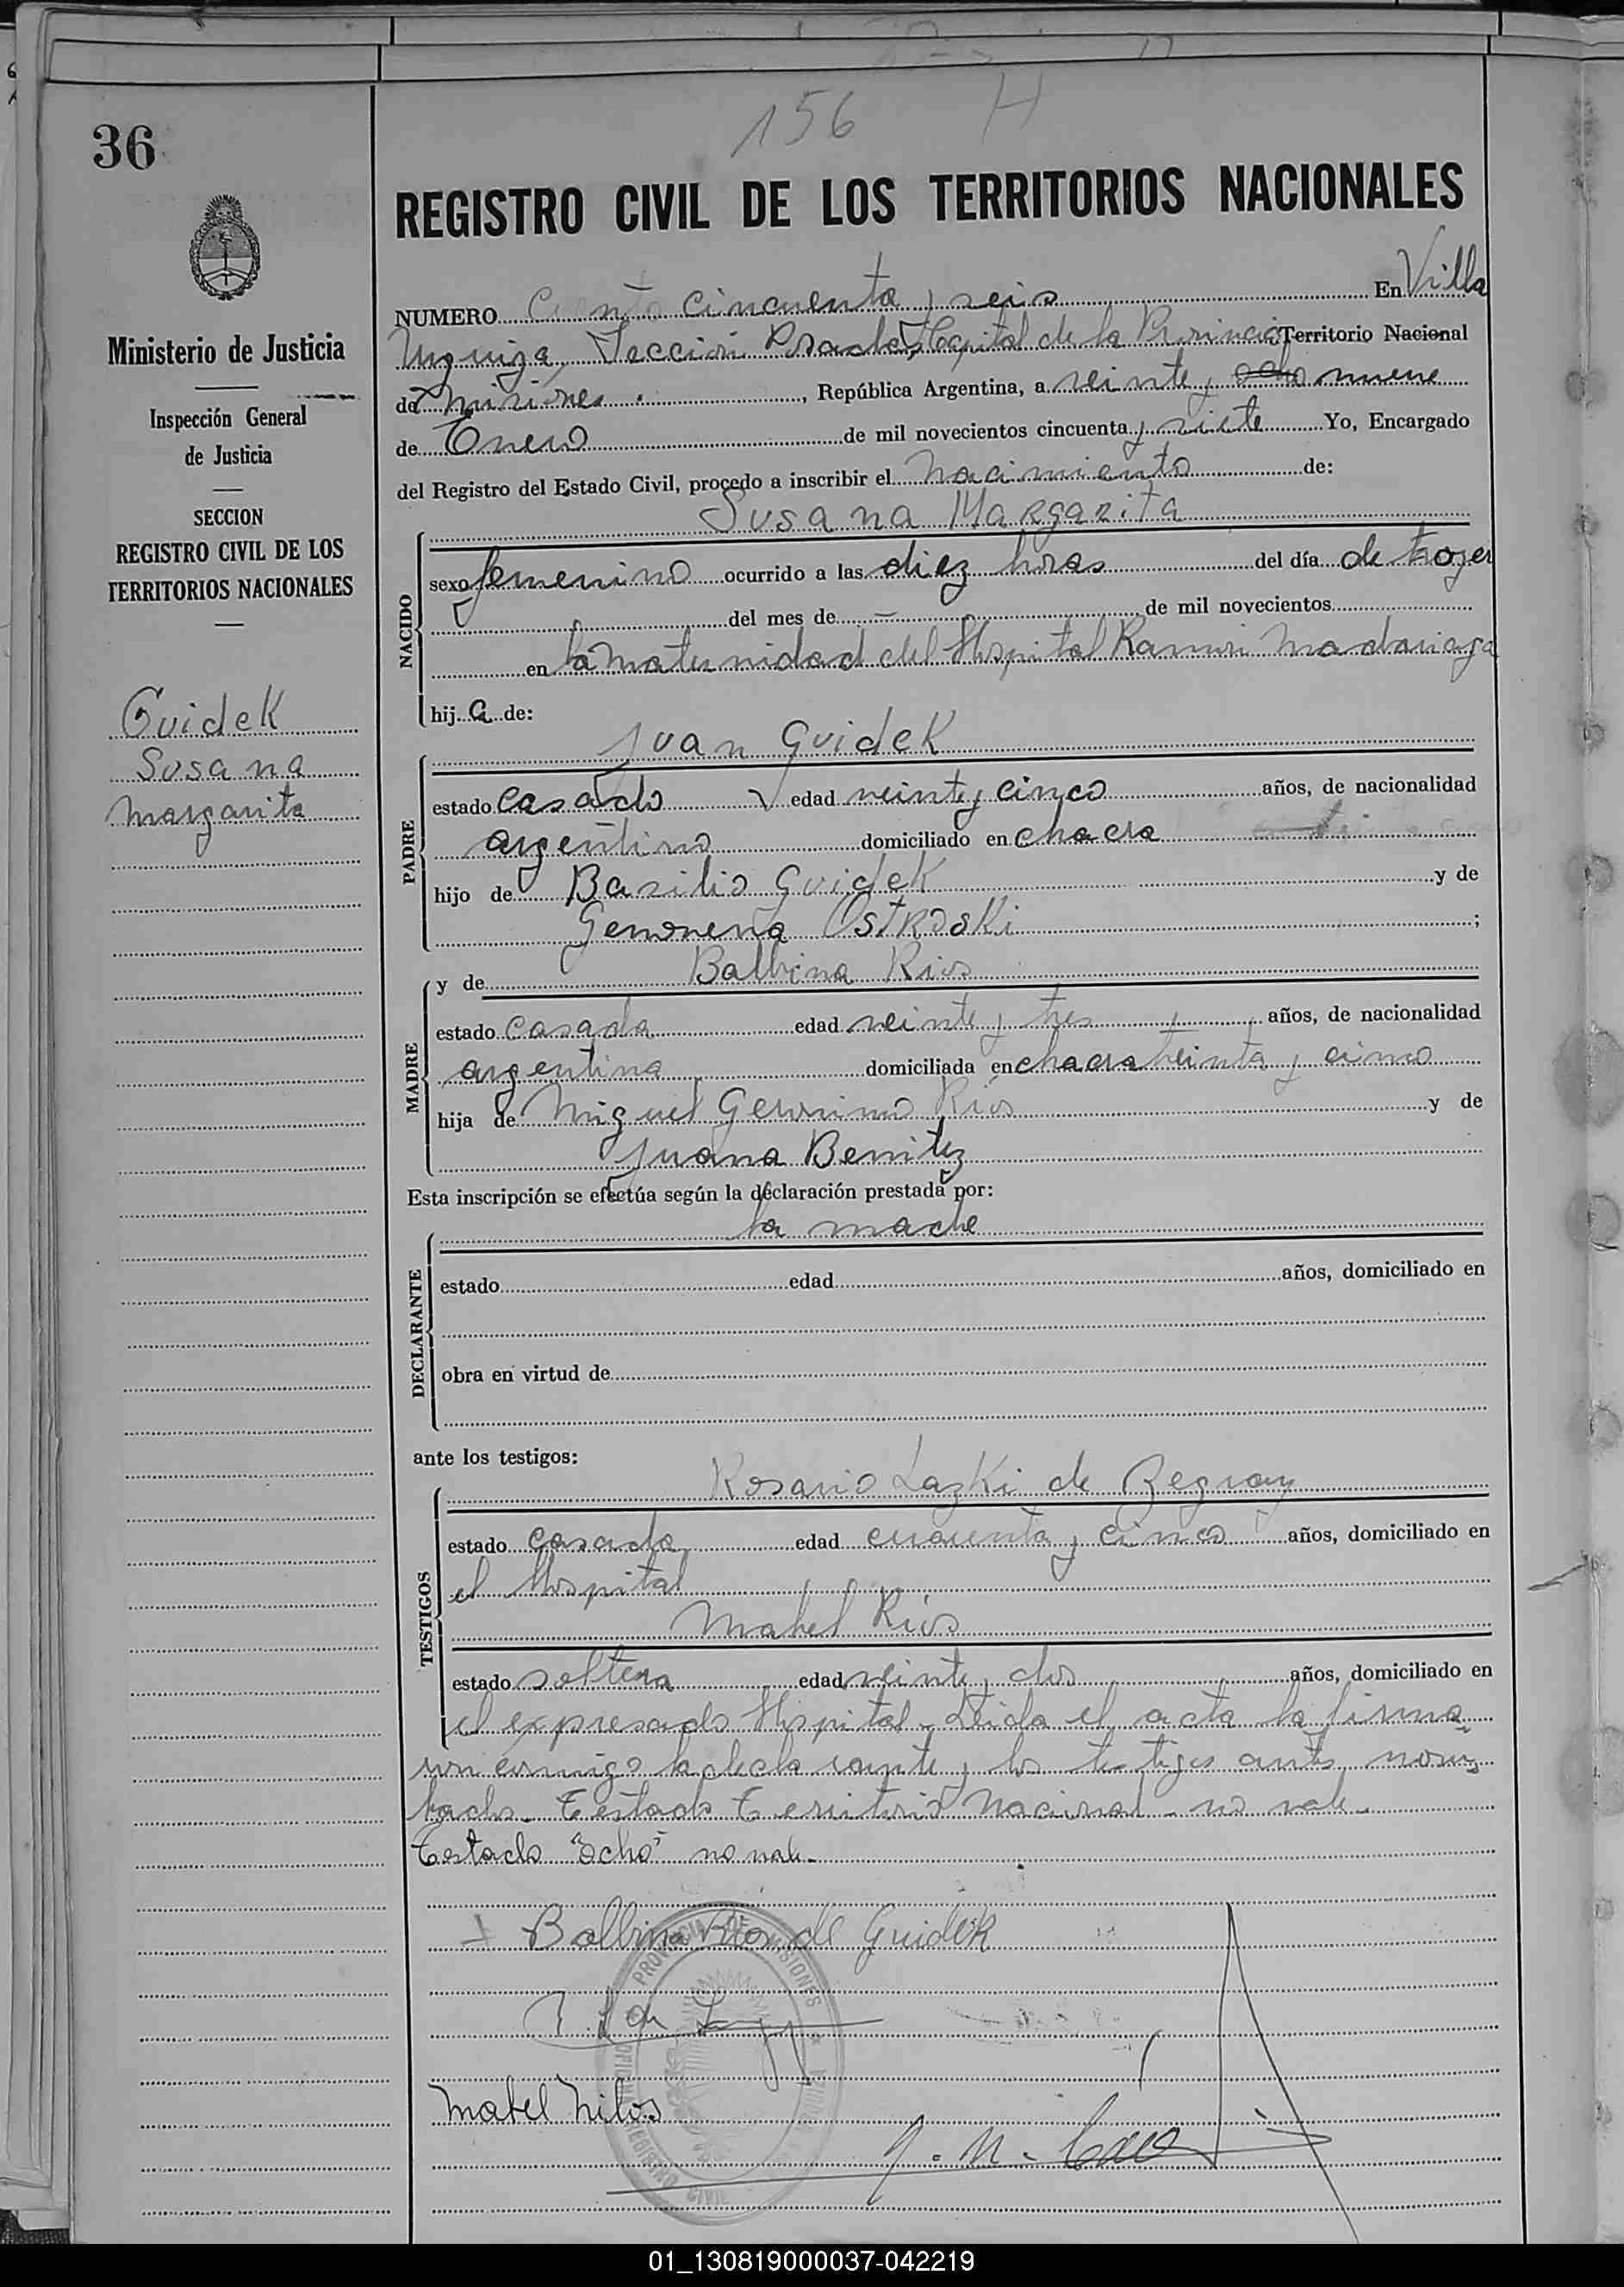 156 H
36
REGISTRO CIVIL DE LOS TERRITORIOS NACIONALES
Ministerio de Justicia
Inspección General
de Justicia
SECCION
REGISTRO CIVIL DE LOS
TERRITORIOS NACIONALES
Guidek
Susana
Margarita
NUMERO Ciento cincuenta y seis En Villa
Urquiza, Sección Posadas Capital de la Provincia Territorio Nacional
de Misiones, República Argentina, a veinte y ocho nueve
de Enero de mil novecientos cincuenta y siete Yo, Encargado
del Registro del Estado Civil, procedo a inscribir el nacimiento de:
Susana Margarita
NACIDO
sexo femenino ocurrido a las diez horas del día de
del mes de — de mil novecientos
en la Maternidad del Hospital Ramón Madariaga
hij a de:
Juan Guidek
PADRE
estado casado edad veinte y cinco años, de nacionalidad
argentino domiciliado en chacra
hijo de Basilio Guidek y de
Genoveva Ostroski;
MADRE
y de Balbina Rios
estado casada edad veinte y tres años, de nacionalidad
argentina domiciliada en chacra treinta y cinco
hija de Miguel Geronimo Rios y de
Juana Benitez
Esta inscripción se efectúa según la declaración prestada por:
la madre
DECLARANTE
estado edad años, domiciliado en
obra en virtud de
ante los testigos:
TESTIGOS
Rosario Lazki de
estado casada edad cuarenta y cinco años, domiciliado en
el Hospital
Mabel Rios
estado soltera edad veinte y dos años, domiciliado en
el expresado Hospital. Leida el acta la firma
ron conmigo la declarante y los testigos antes nom
brados. Testado Territorio Nacional - no vale.
Testado "ocho" no vale.
Balbina Rios de Guidek
Mabel
PROVINCIA DE MISIONES
REGISTRO CIVIL
01_130819000037-042219